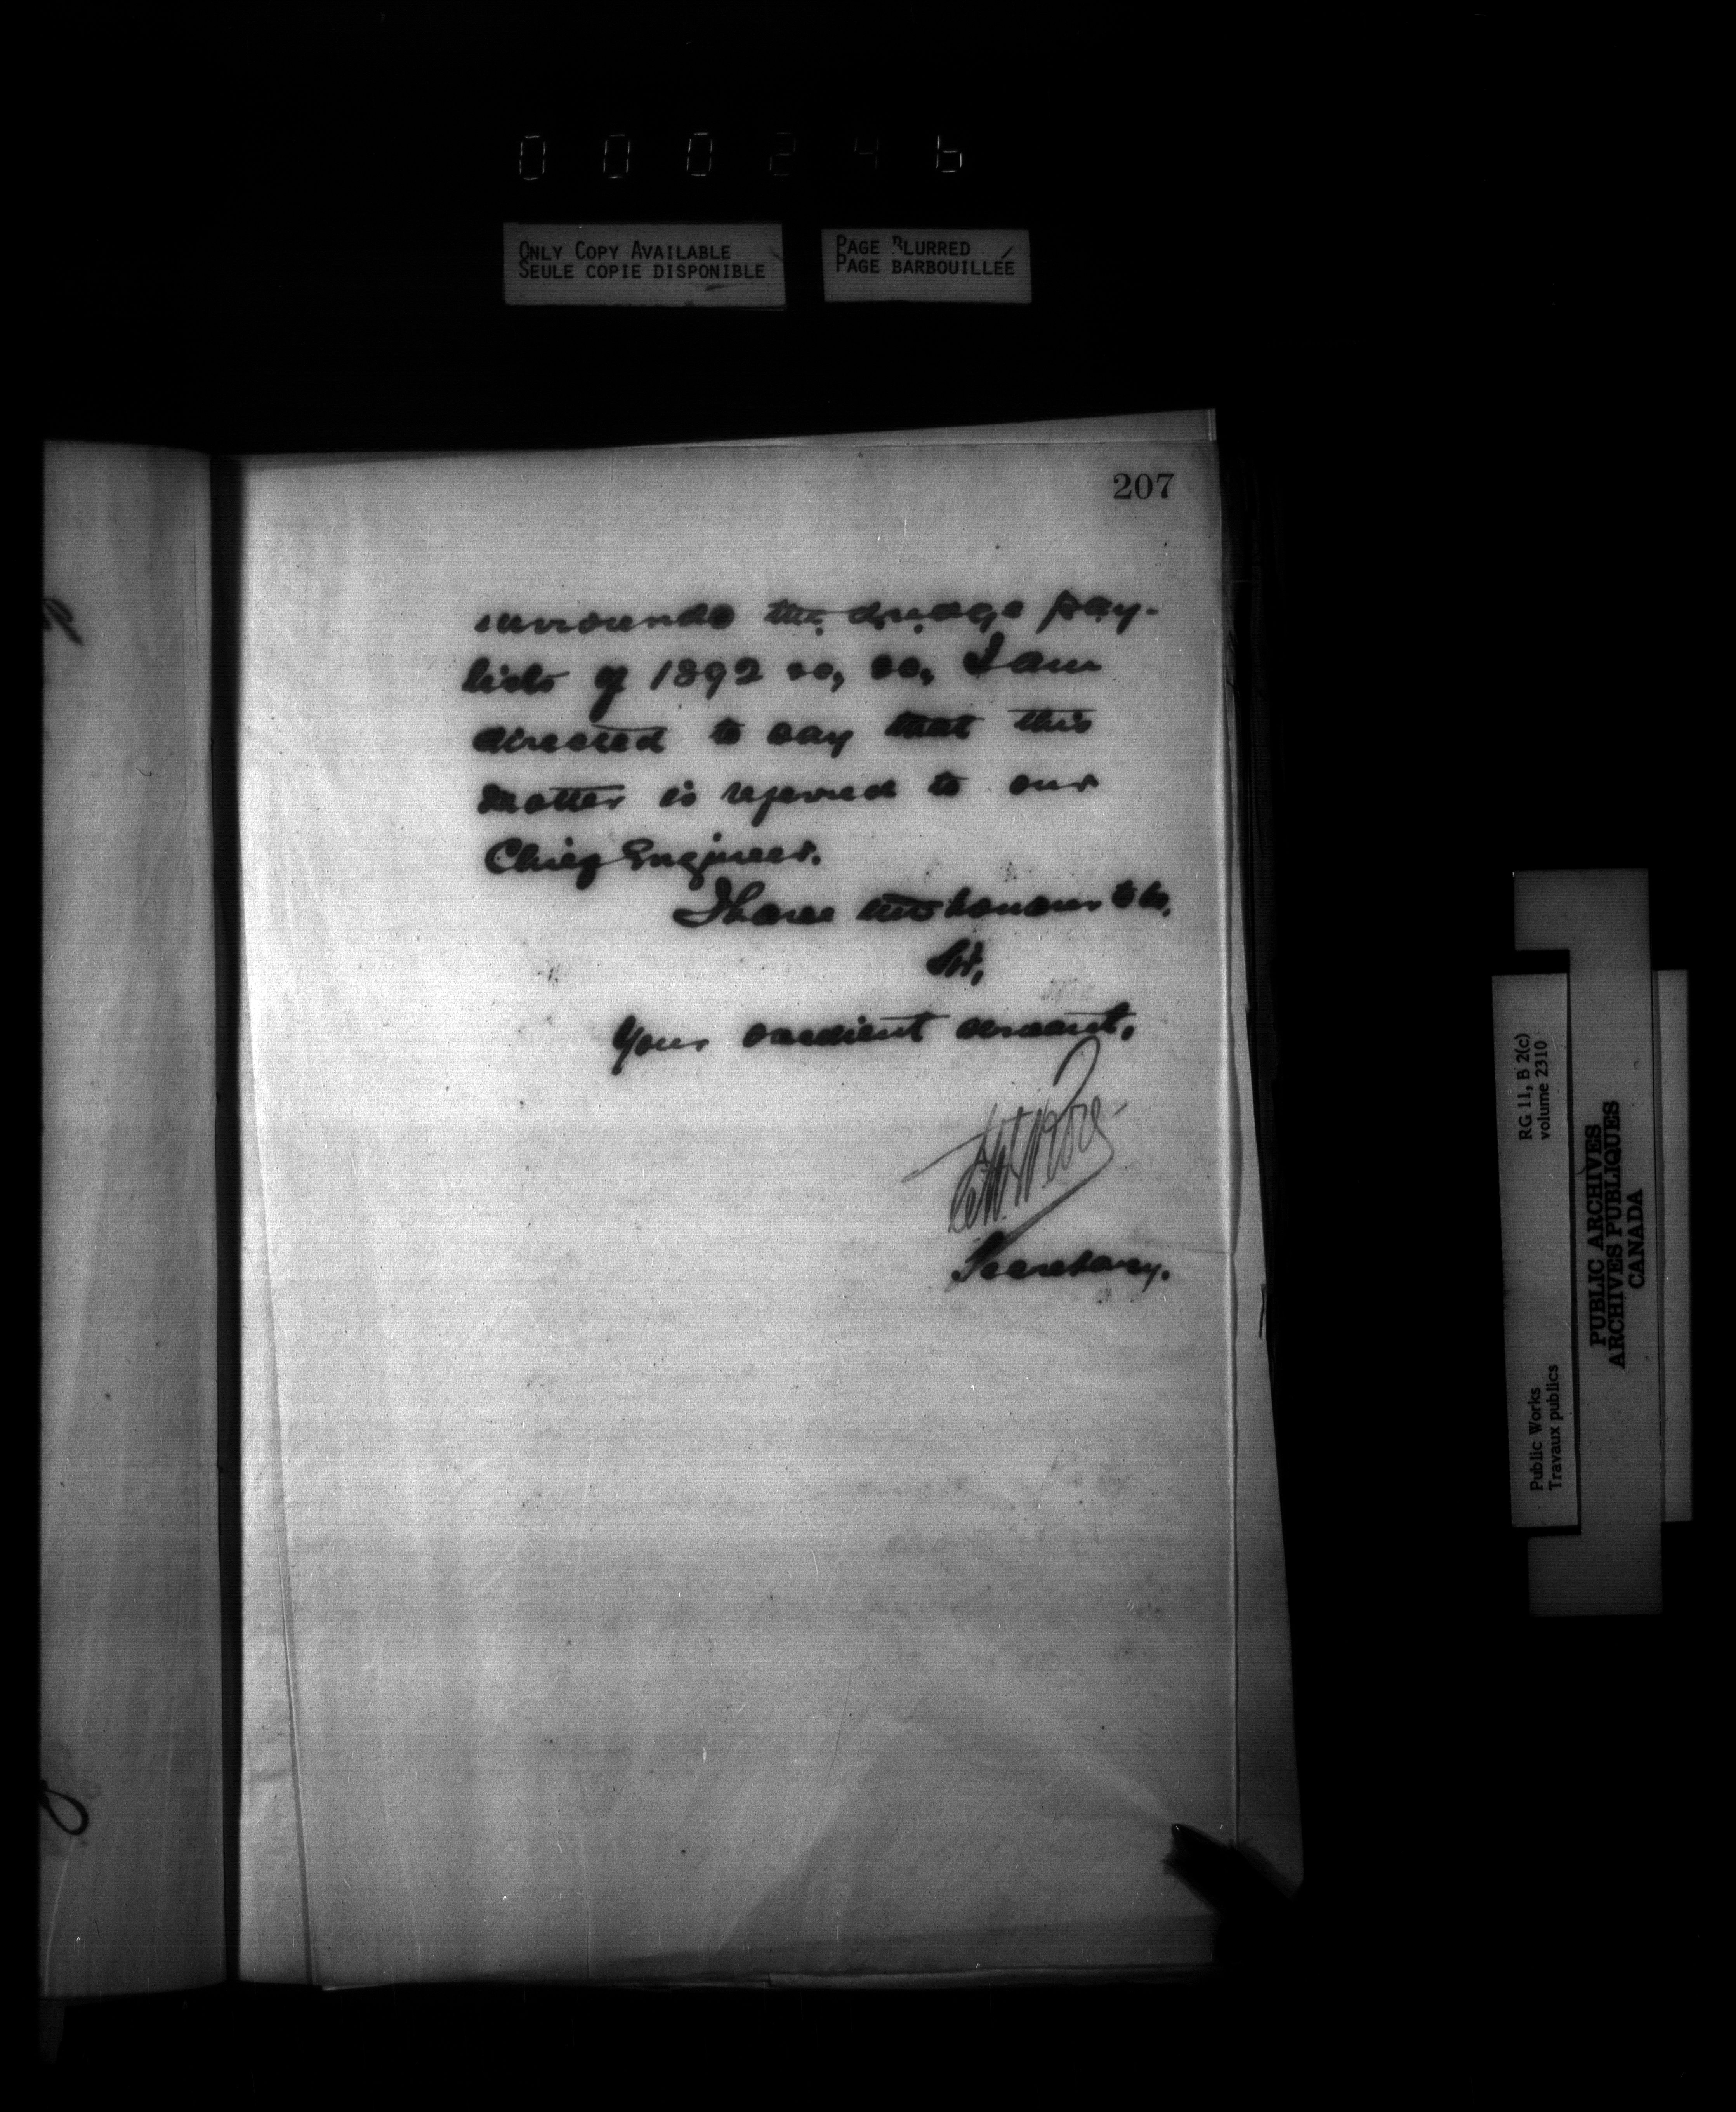 000246
ONLY COPY AVAILABLE
SEULE COPIE DISPONIBLE
PAGE BLURRED
PAGE BARBOUILLÉE
207
surrounds the dredge pay-
lists of 1892 &c, &c, I am
directed to say that this
matter is referred to our
Chief Engineer.
I have the honour to be,
Sir,
Your obedient servant,
Secretary.
RG 11, B 2(c)
volume 2310
Public Works
Travaux publics
PUBLIC ARCHIVES
ARCHIVES PUBLIQUES
CANADA